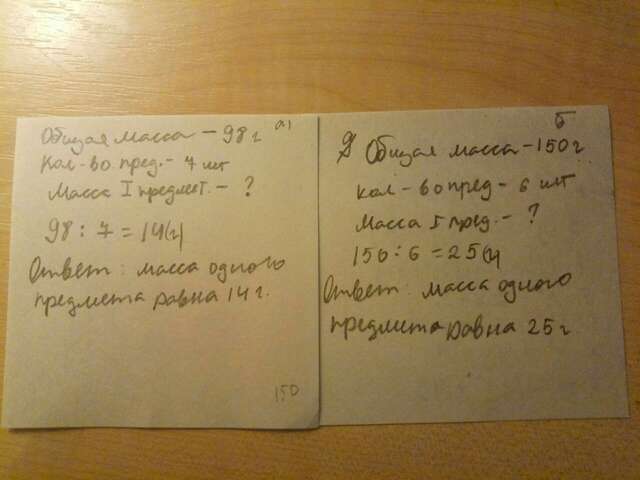 а)
Общая масса - 98 г
Кол-во пред. - 7 шт
Масса I предмет. - ?
98 : 7 = 14(г)
Ответ: масса одного
предмета равна 14 г.
150
б
Общая масса - 150 г
кол-во пред - 6 шт
Масса I пред. - ?
150 : 6 = 25(г)
Ответ: масса одного
предмета равна 25 г